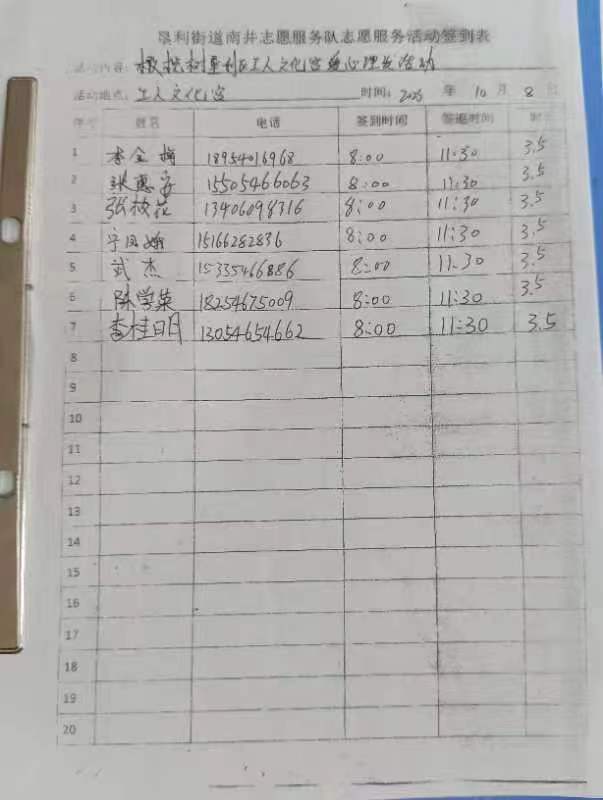 垦利街道南井志愿服务队志愿服务活动签到表
活动内容：橄榄树垦利区工人文化宫爱心理发活动
活动地点：工人文化宫 时间：2025 年 10 月 8 日
序号 姓名 电话 签到时间 签退时间 时
1 李金梅 18954016968 8:00 11:30 3.5
2 张惠 15505466063 8:00 11:30 3.5
3 张枝花 13406098316 8:00 11:30 3.5
4 宁凤娥 15166282836 8:00 11:30 3.5
5 武杰 15335466886 8:00 11:30 3.5
6 陈学英 18254675009 8:00 11:30 3.5
7 李桂明 13054654662 8:00 11:30 3.5
8
9
10
11
12
13
14
15
16
17
18
19
20